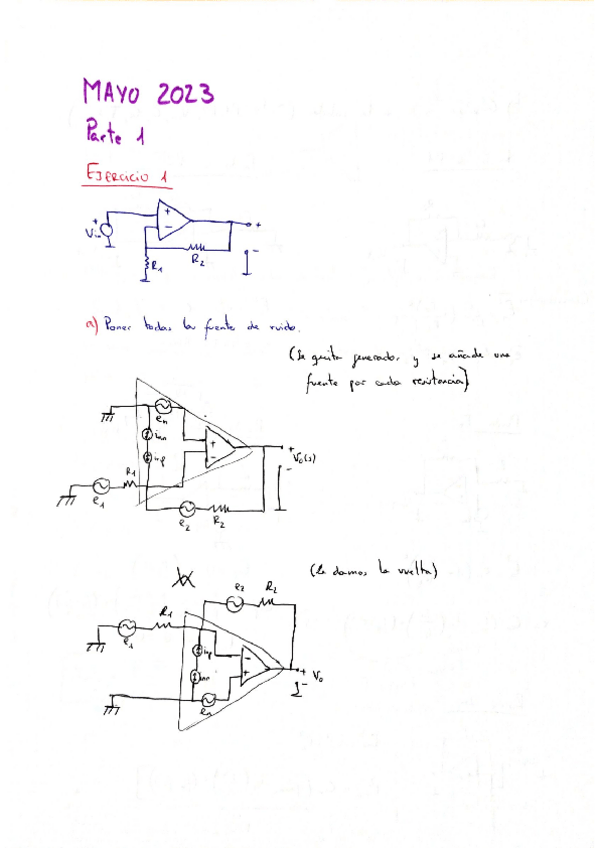 MAYO 2023
Parte 1
Ejercicio 1
+
Vin
+
-
+
-
R1
R2
a) Poner todas la fuente de ruido.
(Se quita generador y se añade una
fuente por cada resistencia)
en
inn
inp
+
-
+
Vo(s)
-
R1
e1
e2
R2
(le damos la vuelta)
e2
R2
R1
e1
inp
inn
-
+
+
Vo
-
en